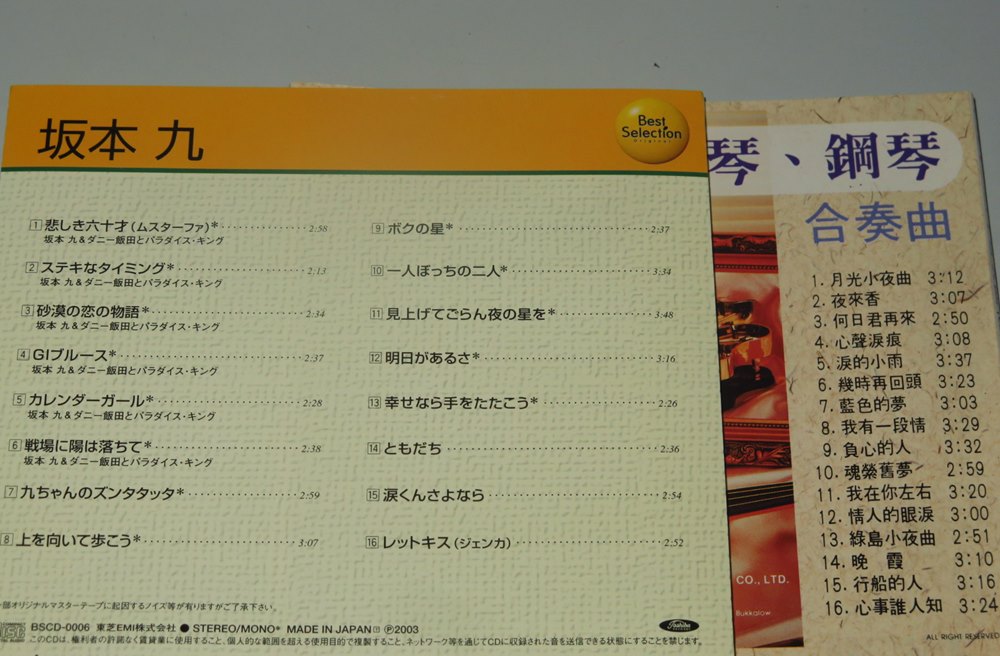 坂本 九
Best
Selection
Original
1 悲しき六十才(ムスターファ)* 2:58
坂本 九&ダニー飯田とパラダイス・キング
2 ステキなタイミング* 2:13
坂本 九&ダニー飯田とパラダイス・キング
3 砂漠の恋の物語* 2:34
坂本 九&ダニー飯田とパラダイス・キング
4 GIブルース* 2:37
坂本 九&ダニー飯田とパラダイス・キング
5 カレンダーガール* 2:28
坂本 九&ダニー飯田とパラダイス・キング
6 戦場に陽は落ちて* 2:38
坂本 九&ダニー飯田とパラダイス・キング
7 九ちゃんのズンタタッタ* 2:59
8 上を向いて歩こう* 3:07
9 ボクの星* 2:37
10 一人ぼっちの二人* 3:34
11 見上げてごらん夜の星を* 3:48
12 明日があるさ* 3:16
13 幸せなら手をたたこう* 2:26
14 ともだち 2:36
15 涙くんさよなら 2:54
16 レットキス(ジェンカ) 2:52
一部オリジナルマスターテープに起因するノイズ等が有りますがご了承下さい。
BSCD-0006 東芝EMI株式会社 ● STEREO/MONO* MADE IN JAPAN ℗2003
このCDは、権利者の許諾なく賃貸業に使用すること、個人的な範囲を超える使用目的で複製すること、ネットワーク等を通じてCDに収録された音を送信できる状態にすることを禁じます。
Toshiba
琴、鋼琴
合奏曲
1. 月光小夜曲 3:12
2. 夜來香 3:07
3. 何日君再來 2:50
4. 心聲淚痕 3:08
5. 淚的小雨 3:37
6. 幾時再回頭 3:23
7. 藍色的夢 3:03
8. 我有一段情 3:29
9. 負心的人 3:32
10. 魂縈舊夢 2:59
11. 我在你左右 3:20
12. 情人的眼淚 3:00
13. 綠島小夜曲 2:51
14. 晚 霞 3:10
15. 行船的人 3:16
16. 心事誰人知 3:24
CO., LTD.
Bukkalow
ALL RIGHT RESERVED